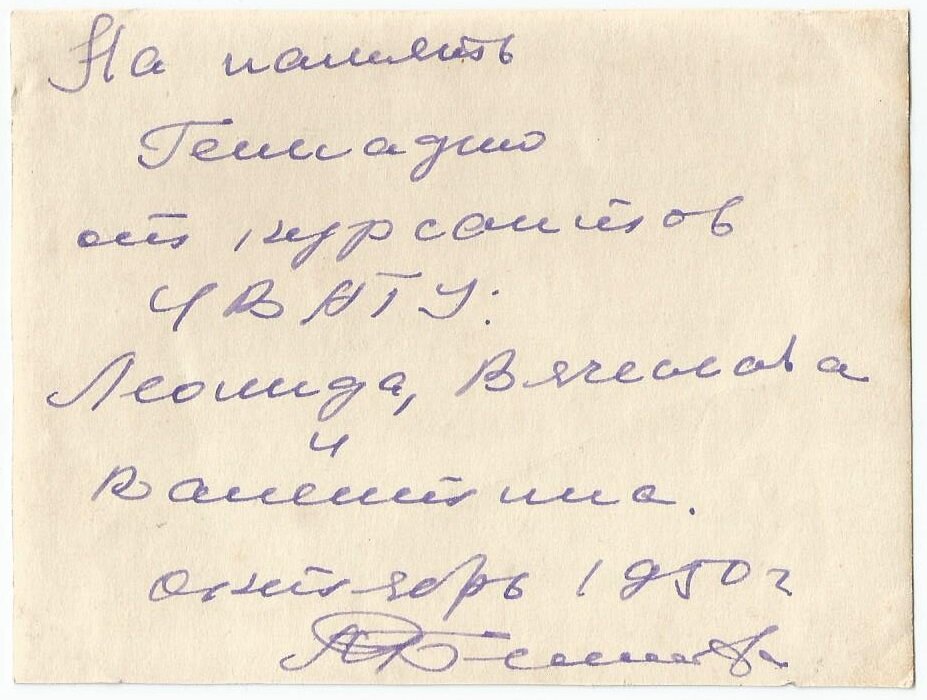 На память
Геннадию
от курсантов
ЧВАТУ:
Леонида, Вячеслава
и
Валентина.
октябрь 1950 г